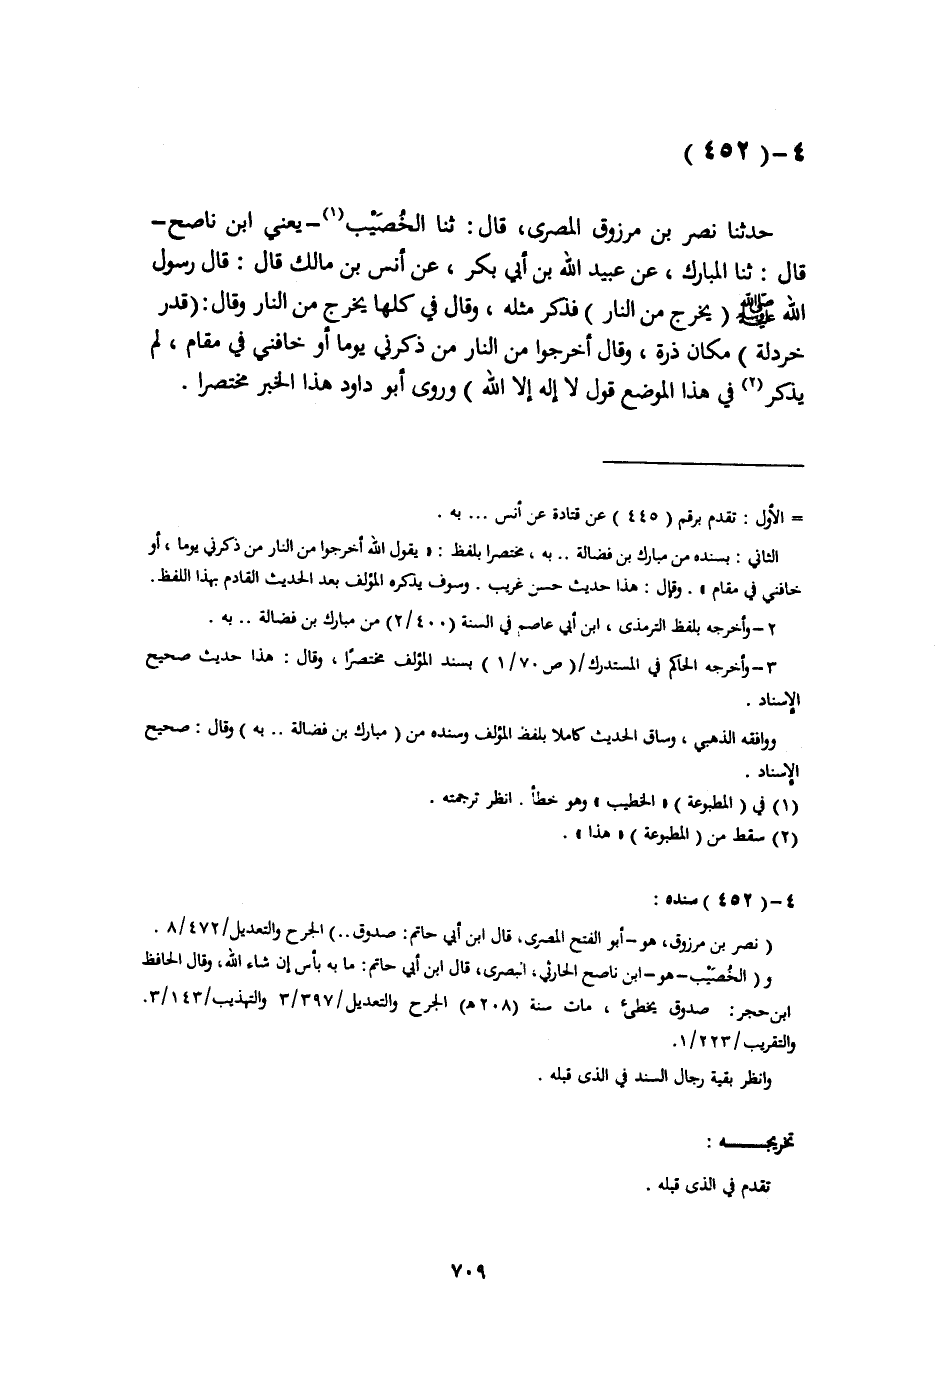 ٤ -( ٤٥٢ )
حدثنا نصر بن مرزوق المصرى، قال: ثنا الخُصَيْب(١)-يعني ابن ناصح-
قال : ثنا المبارك ، عن عبيد الله بن أبي بكر ، عن أنس بن مالك قال : قال رسول
الله ﷺ ( يخرج من النار ) فذكر مثله ، وقال في كلها يخرج من النار وقال:(قدر
خردلة ) مكان ذرة ، وقال أخرجوا من النار من ذكرني يوما أو خافني في مقام ، لم
يذكر(٢) في هذا الموضع قول لا إله إلا الله ) وروى أبو داود هذا الخبر مختصرا .
= الأول : تقدم برقم ( ٤٤٥ ) عن قتادة عن أنس ... به .
الثاني : بسنده من مبارك بن فضالة .. به ، مختصرا بلفظ : « يقول الله أخرجوا من النار من ذكرني يوما ، أو
خافني في مقام » . وقال : هذا حديث حسن غريب . وسوف يذكره المؤلف بعد الحديث القادم بهذا اللفظ.
٢ -وأخرجه بلفظ الترمذى ، ابن أبي عاصم في السنة (٢/٤٠٠) من مبارك بن فضالة .. به .
٣ -وأخرجه الحاكم في المستدرك/( ص ١/٧٠ ) بسند المؤلف مختصرًا ، وقال : هذا حديث صحيح
الإسناد .
ووافقه الذهبي ، وساق الحديث كاملا بلفظ المؤلف وسنده من ( مبارك بن فضالة .. به ) وقال : صحيح
الإسناد .
(١) في ( المطبوعة ) « الخطيب » وهو خطأ . انظر ترجمته .
(٢) سقط من ( المطبوعة ) « هذا » .
٤ -( ٤٥٢ ) سنده :
( نصر بن مرزوق، هو-أبو الفتح المصرى، قال ابن أبي حاتم: صدوق..) الجرح والتعديل/٨/٤٧٢ .
و ( الخُصَيْب-هو-ابن ناصح الحارثي، البصرى، قال ابن أبي حاتم: ما به بأس إن شاء الله، وقال الحافظ
ابن حجر: صدوق يخطئ ، مات سنة (٢٠٨هـ) الجرح والتعديل/٣/٣٩٧ والتهذيب/٣/١٤٣.
والتقريب/١/٢٢٣.
وانظر بقية رجال السند في الذى قبله .
تخريجـــــه :
تقدم في الذى قبله .
٧٠٩